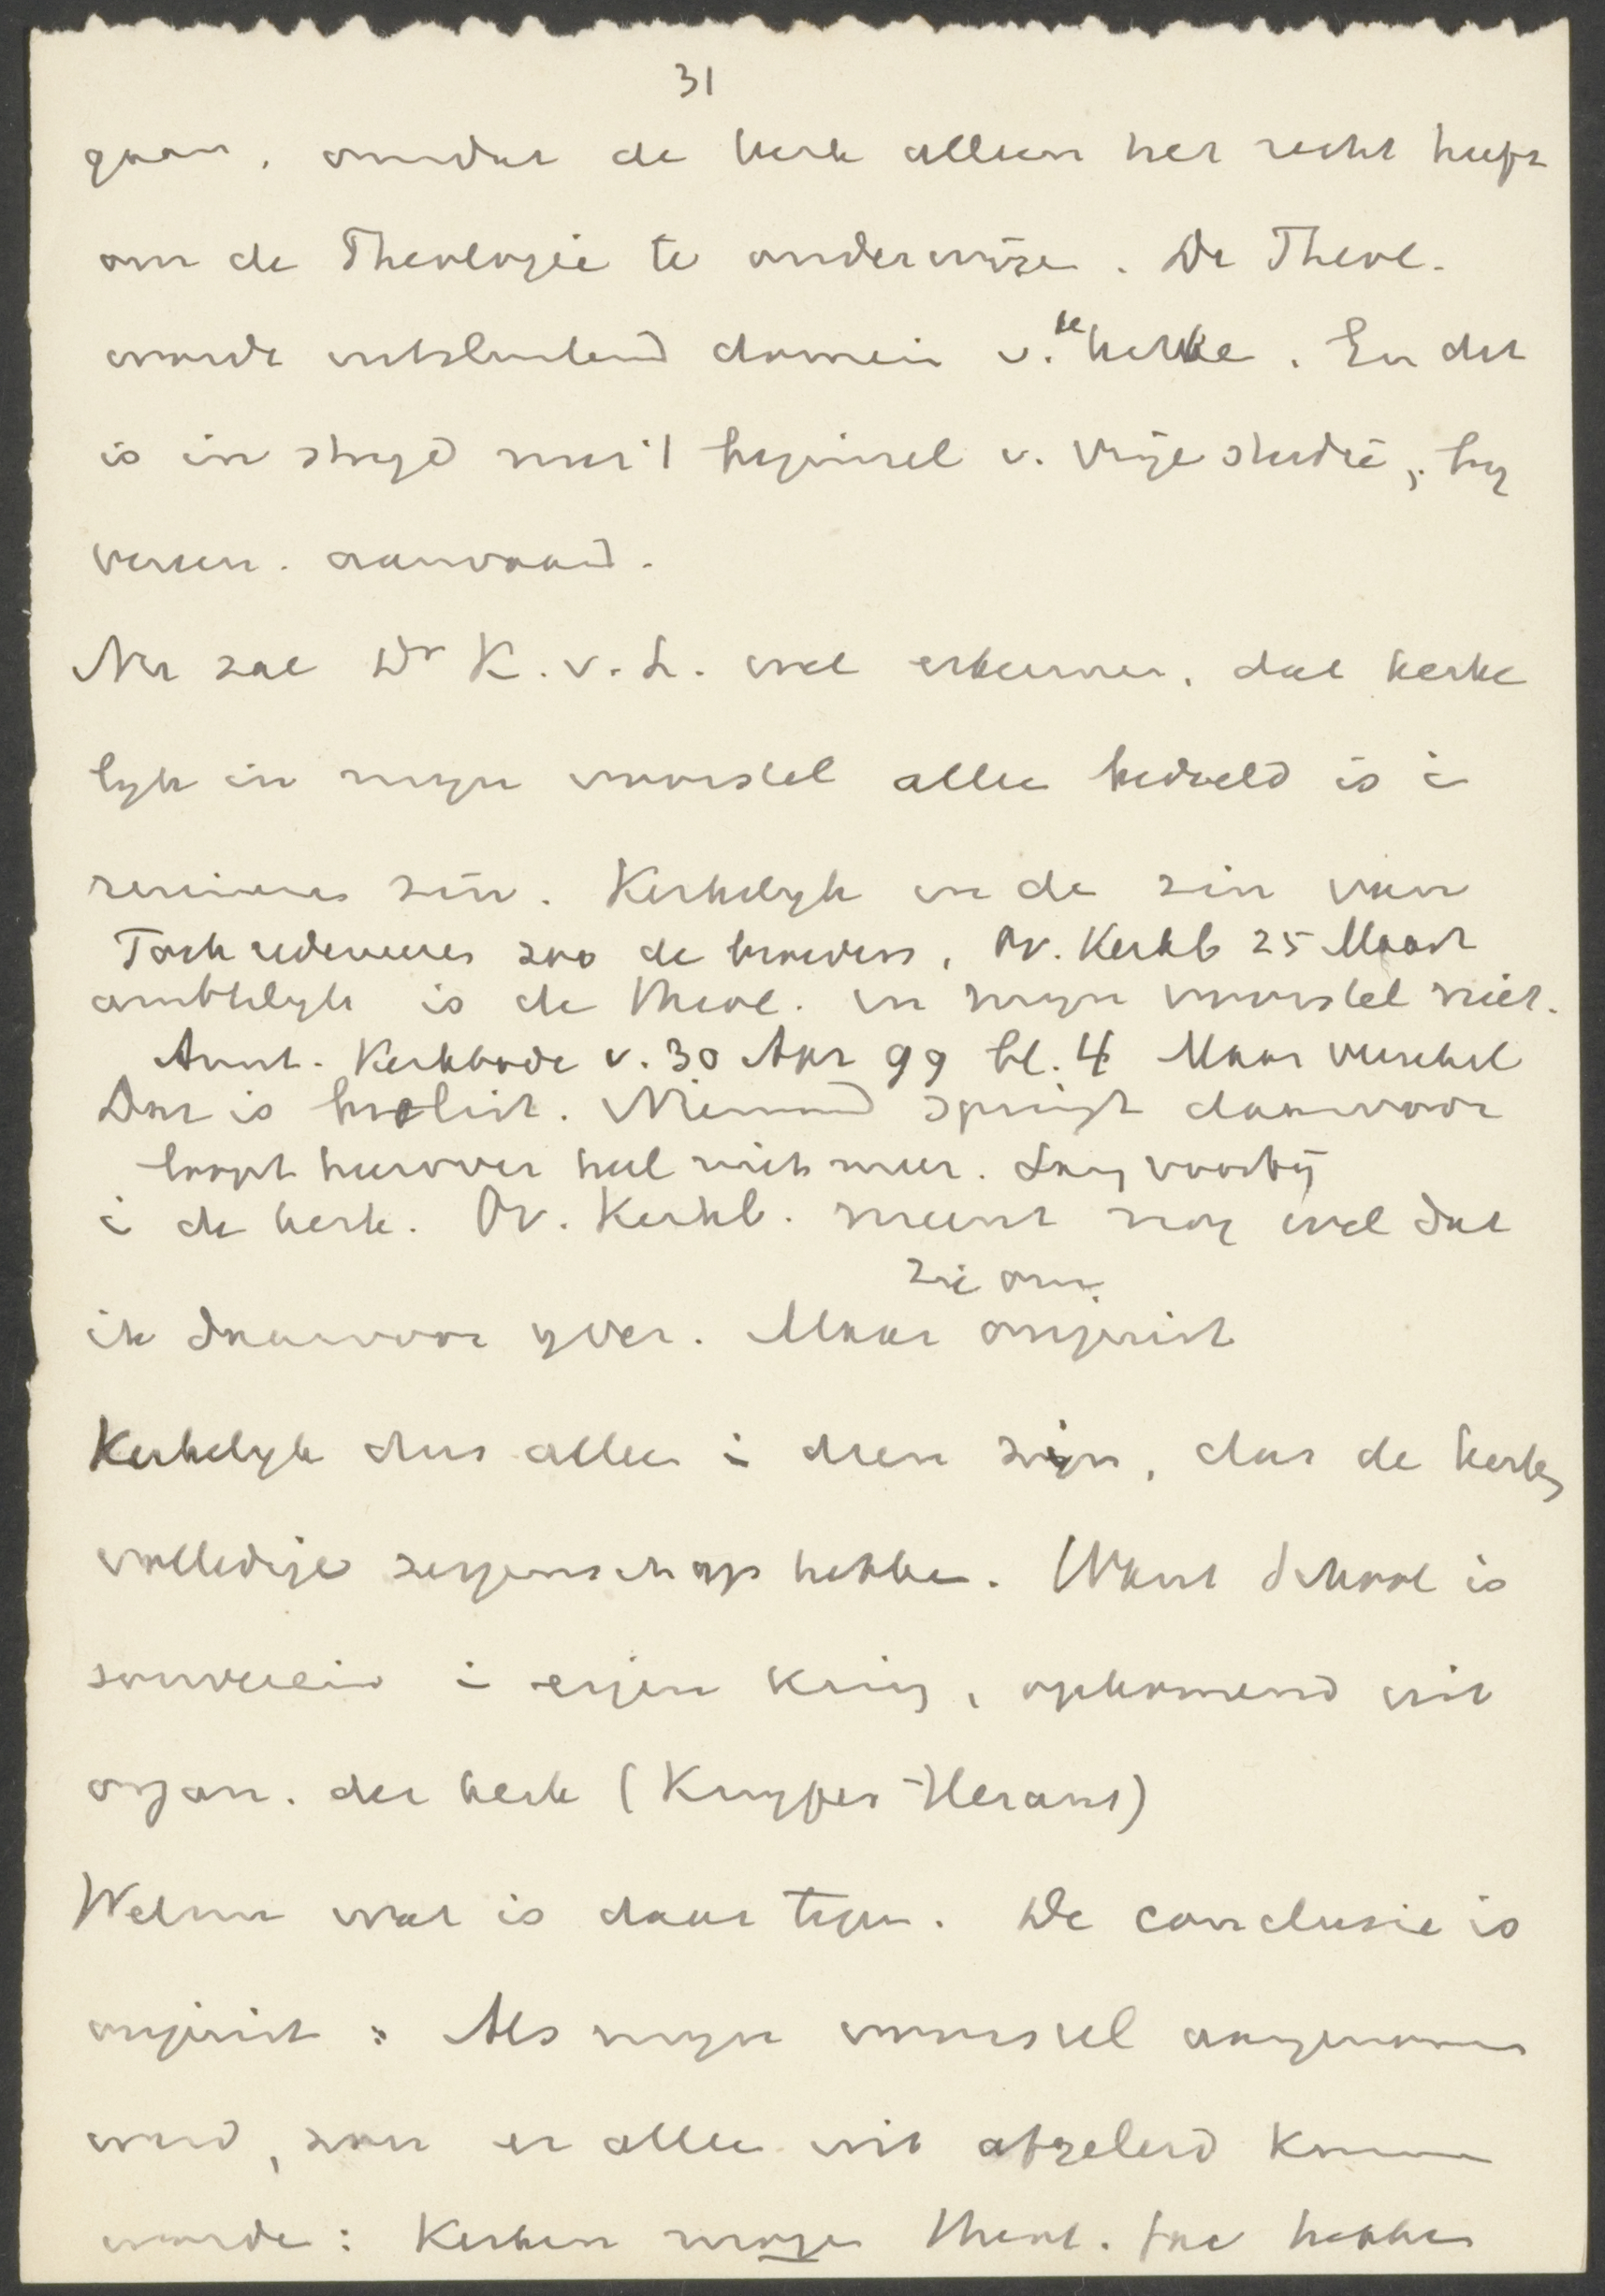 31
gaan, omdat de kerk alleen het recht heeft
om de Theologie te onderwijzen. De Theol.
worde uitsluitend domein v. de kerke. En dit
is in strijd met 't beginsel v. vrije studie, by
vereen. aanvaard.
Nu zal Dr K. v. L. wel erkennen, dat kerke
lyk in myn voorstel allee bedoeld is i
ruimeren zin. Kerkelyk in de zin van
Toch redeneeren zoo de broeders, Ov. Kerkb 25 Maart
ambtelyk is de theol. in myn voorstel niet.
Amst. Kerkbode v. 30 Apr 99 bl. 4 Maar verschil
Dat is beslist. Niemand springt daarvoor
loopt hierover heel niet meer. Lang voorbij
i de kerk. Ov. Kerkb. meent nog wel dat
zie om.
ik daarvoor yver. Maar onjuist
Kerkelyk dus allee i dien zijn, dat de kerken
volledige zeggenschap hebben. Want School is
souverein i eigen kring, opkomend uit
organ. der kerk (Kuyper - Heraut)
Welnu wat is daar tegen. De conclusie is
onjuist: Als myn voorstel aangenomen
werd, zou er allee uit afgeleid kunnen
worde: Kerken mogen theol. fac hebben